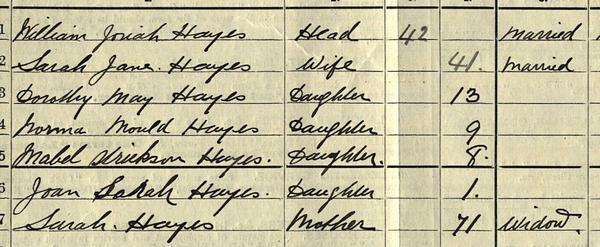 1 William Josiah Hayes Head 42 Married
2 Sarah Jane Hayes Wife 41. Married
3 Dorothy May Hayes Daughter 13
4 Norma Mould Hayes Daughter 9
5 Mabel Hayes. Daughter. 8.
6 Joan Sarah Hayes. Daughter 1.
7 Sarah. Hayes Mother 71 Widow.